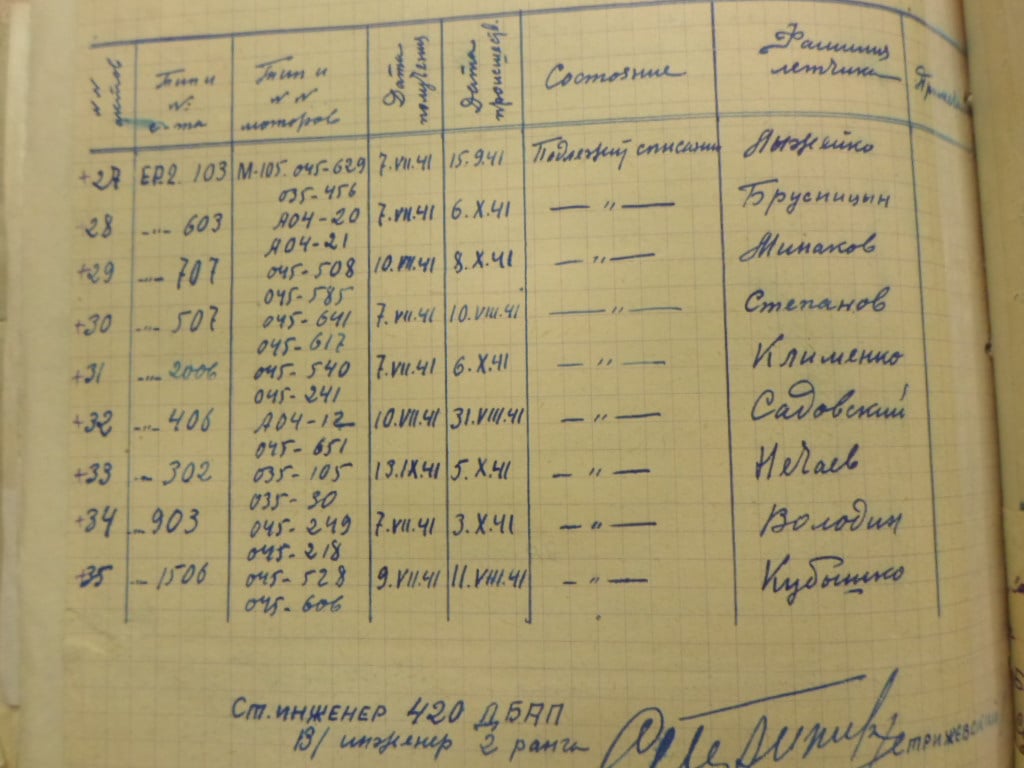 №№ листов Тип и № с-та Тип и №№ моторов Дата получения Дата происшеств. Состояние Фамилия летчика
+27 ЕР.2 103 М-105. 045-629 7.VII.41 15.9.41 Подлежит списанию Лыжейко
035-456
28 —"— 603 А04-20 7.VII.41 6.X.41 — " — Брусницын
А04-21
+29 —"— 707 045-508 10.VII.41 8.X.41 — " — Минаков
045-585
+30 —"— 507 045-641 7.VII.41 10.VIII.41 — " — Степанов
045-617
+31 —"— 2006 045-540 7.VII.41 6.X.41 — " — Клименко
045-241
+32 —"— 406 А04-12 10.VII.41 31.VIII.41 — " — Садовский
045-651
+33 —"— 302 035-105 13.IX.41 5.X.41 — " — Нечаев
035-30
+34 —"— 903 045-249 7.VII.41 3.X.41 — " — Володин
045-218
+35 —"— 1506 045-528 9.VII.41 11.VIII.41 — " — Кубышко
045-606
Ст. ИНЖЕНЕР 420 ДБАП
В/инженер 2 ранга